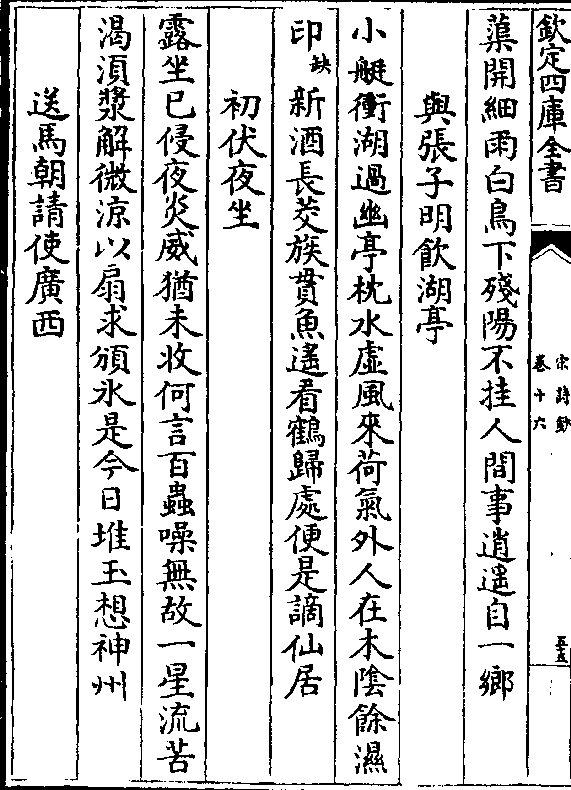 欽定四庫全書
宋詩鈔
卷十六
五五
蕖開細雨白鳥下殘陽不挂人間事逍遥自一鄉
與張子明飲湖亭
小艇衝湖過幽亭枕水虛風來荷氣外人在木陰餘濕
印缺新酒長茭族貫魚遙看鶴歸處便是謫仙居
初伏夜坐
露坐已侵夜炎威猶未收何言百蟲噪無故一星流苦
渴湏漿解微涼以扇求頒氷是今日堆玉想神州
送馬朝請使廣西